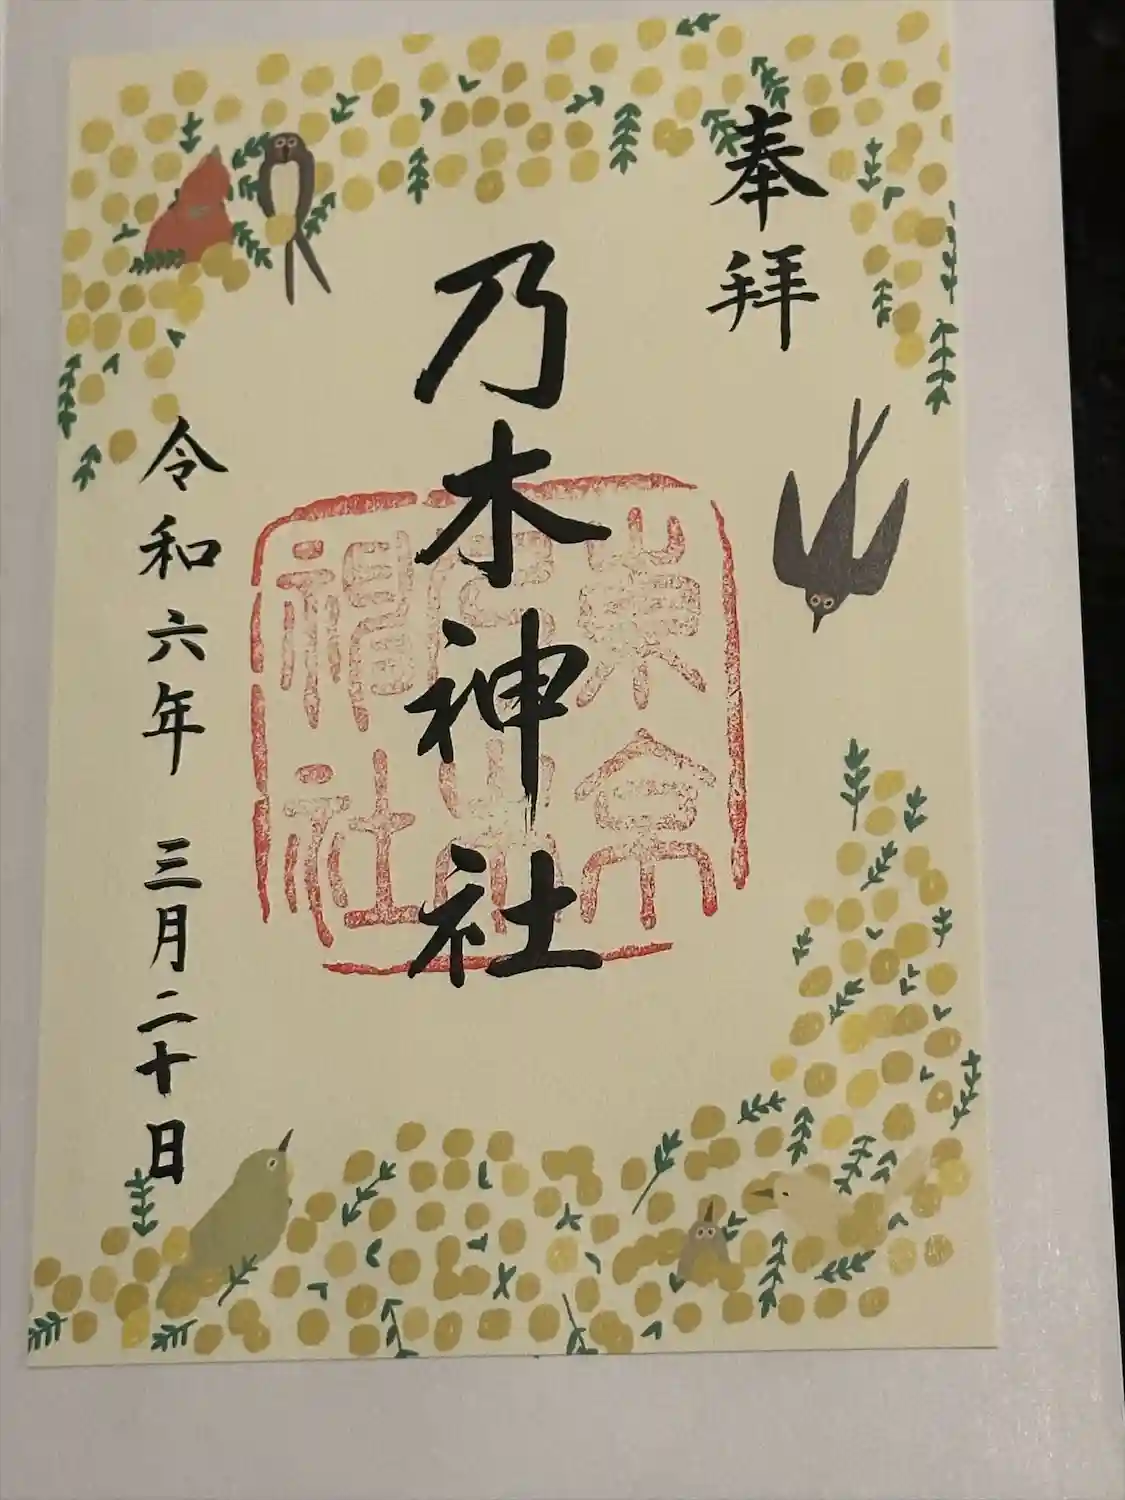 奉拝
乃木神社
東京
令和六年 三月二十日